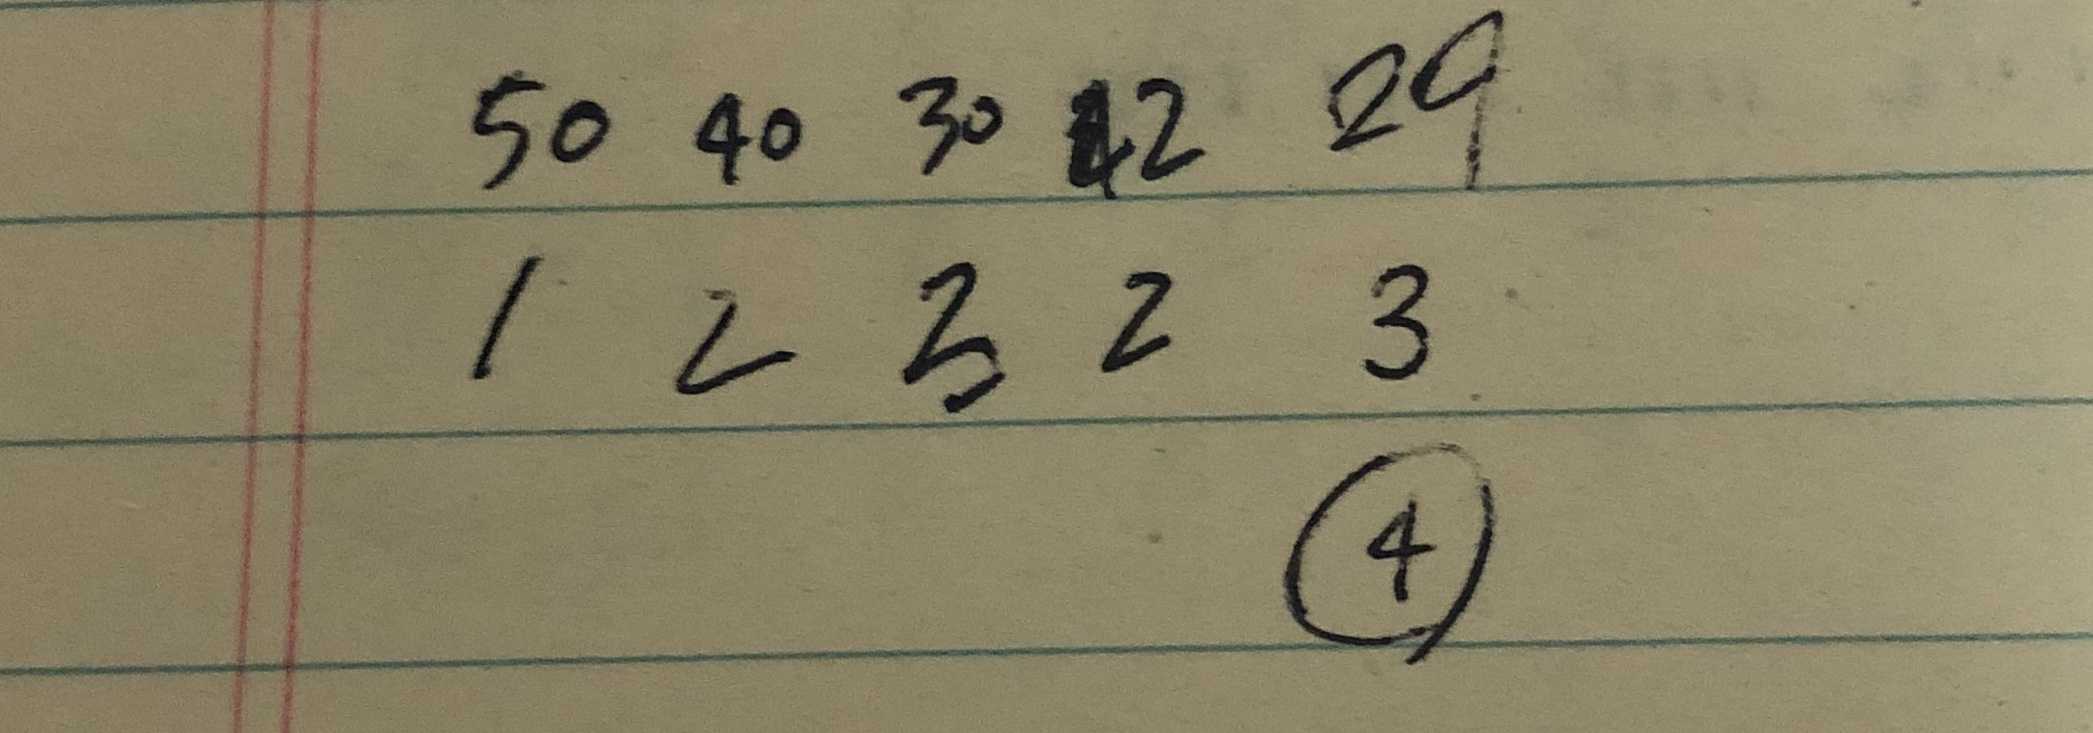 50 40 30 42 29
1 2 3 2 3
4